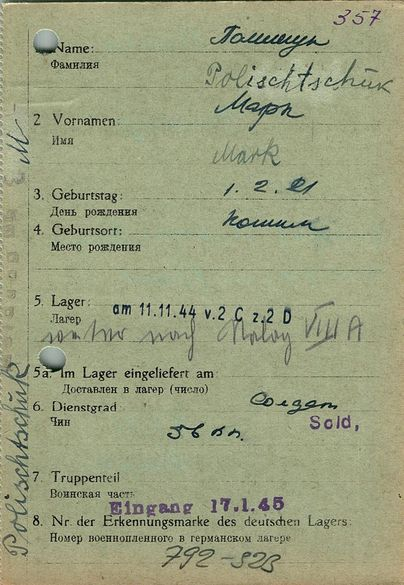 357
Name:
Фамилия
Polischtschük
2 Vornamen:
Марк
Имя
Mark
3. Geburtstag:
1. 2. 21
День рождения
4. Geburtsort:
Место рождения
5. Lager:
am 11.11.44 v. 2 C z. 2 D
Лагер
weiter nach Stalag VIII A
5a. Im Lager eingeliefert am:
Доставлен в лагер (число)
6. Dienstgrad:
Солдат
Чин
Sold,
7. Truppenteil
Воинская часть
Eingang 17.1.45
8. Nr. der Erkennungsmarke des deutschen Lagers:
Номер военнопленного в германском лагере
792-32B
Polischtschük M